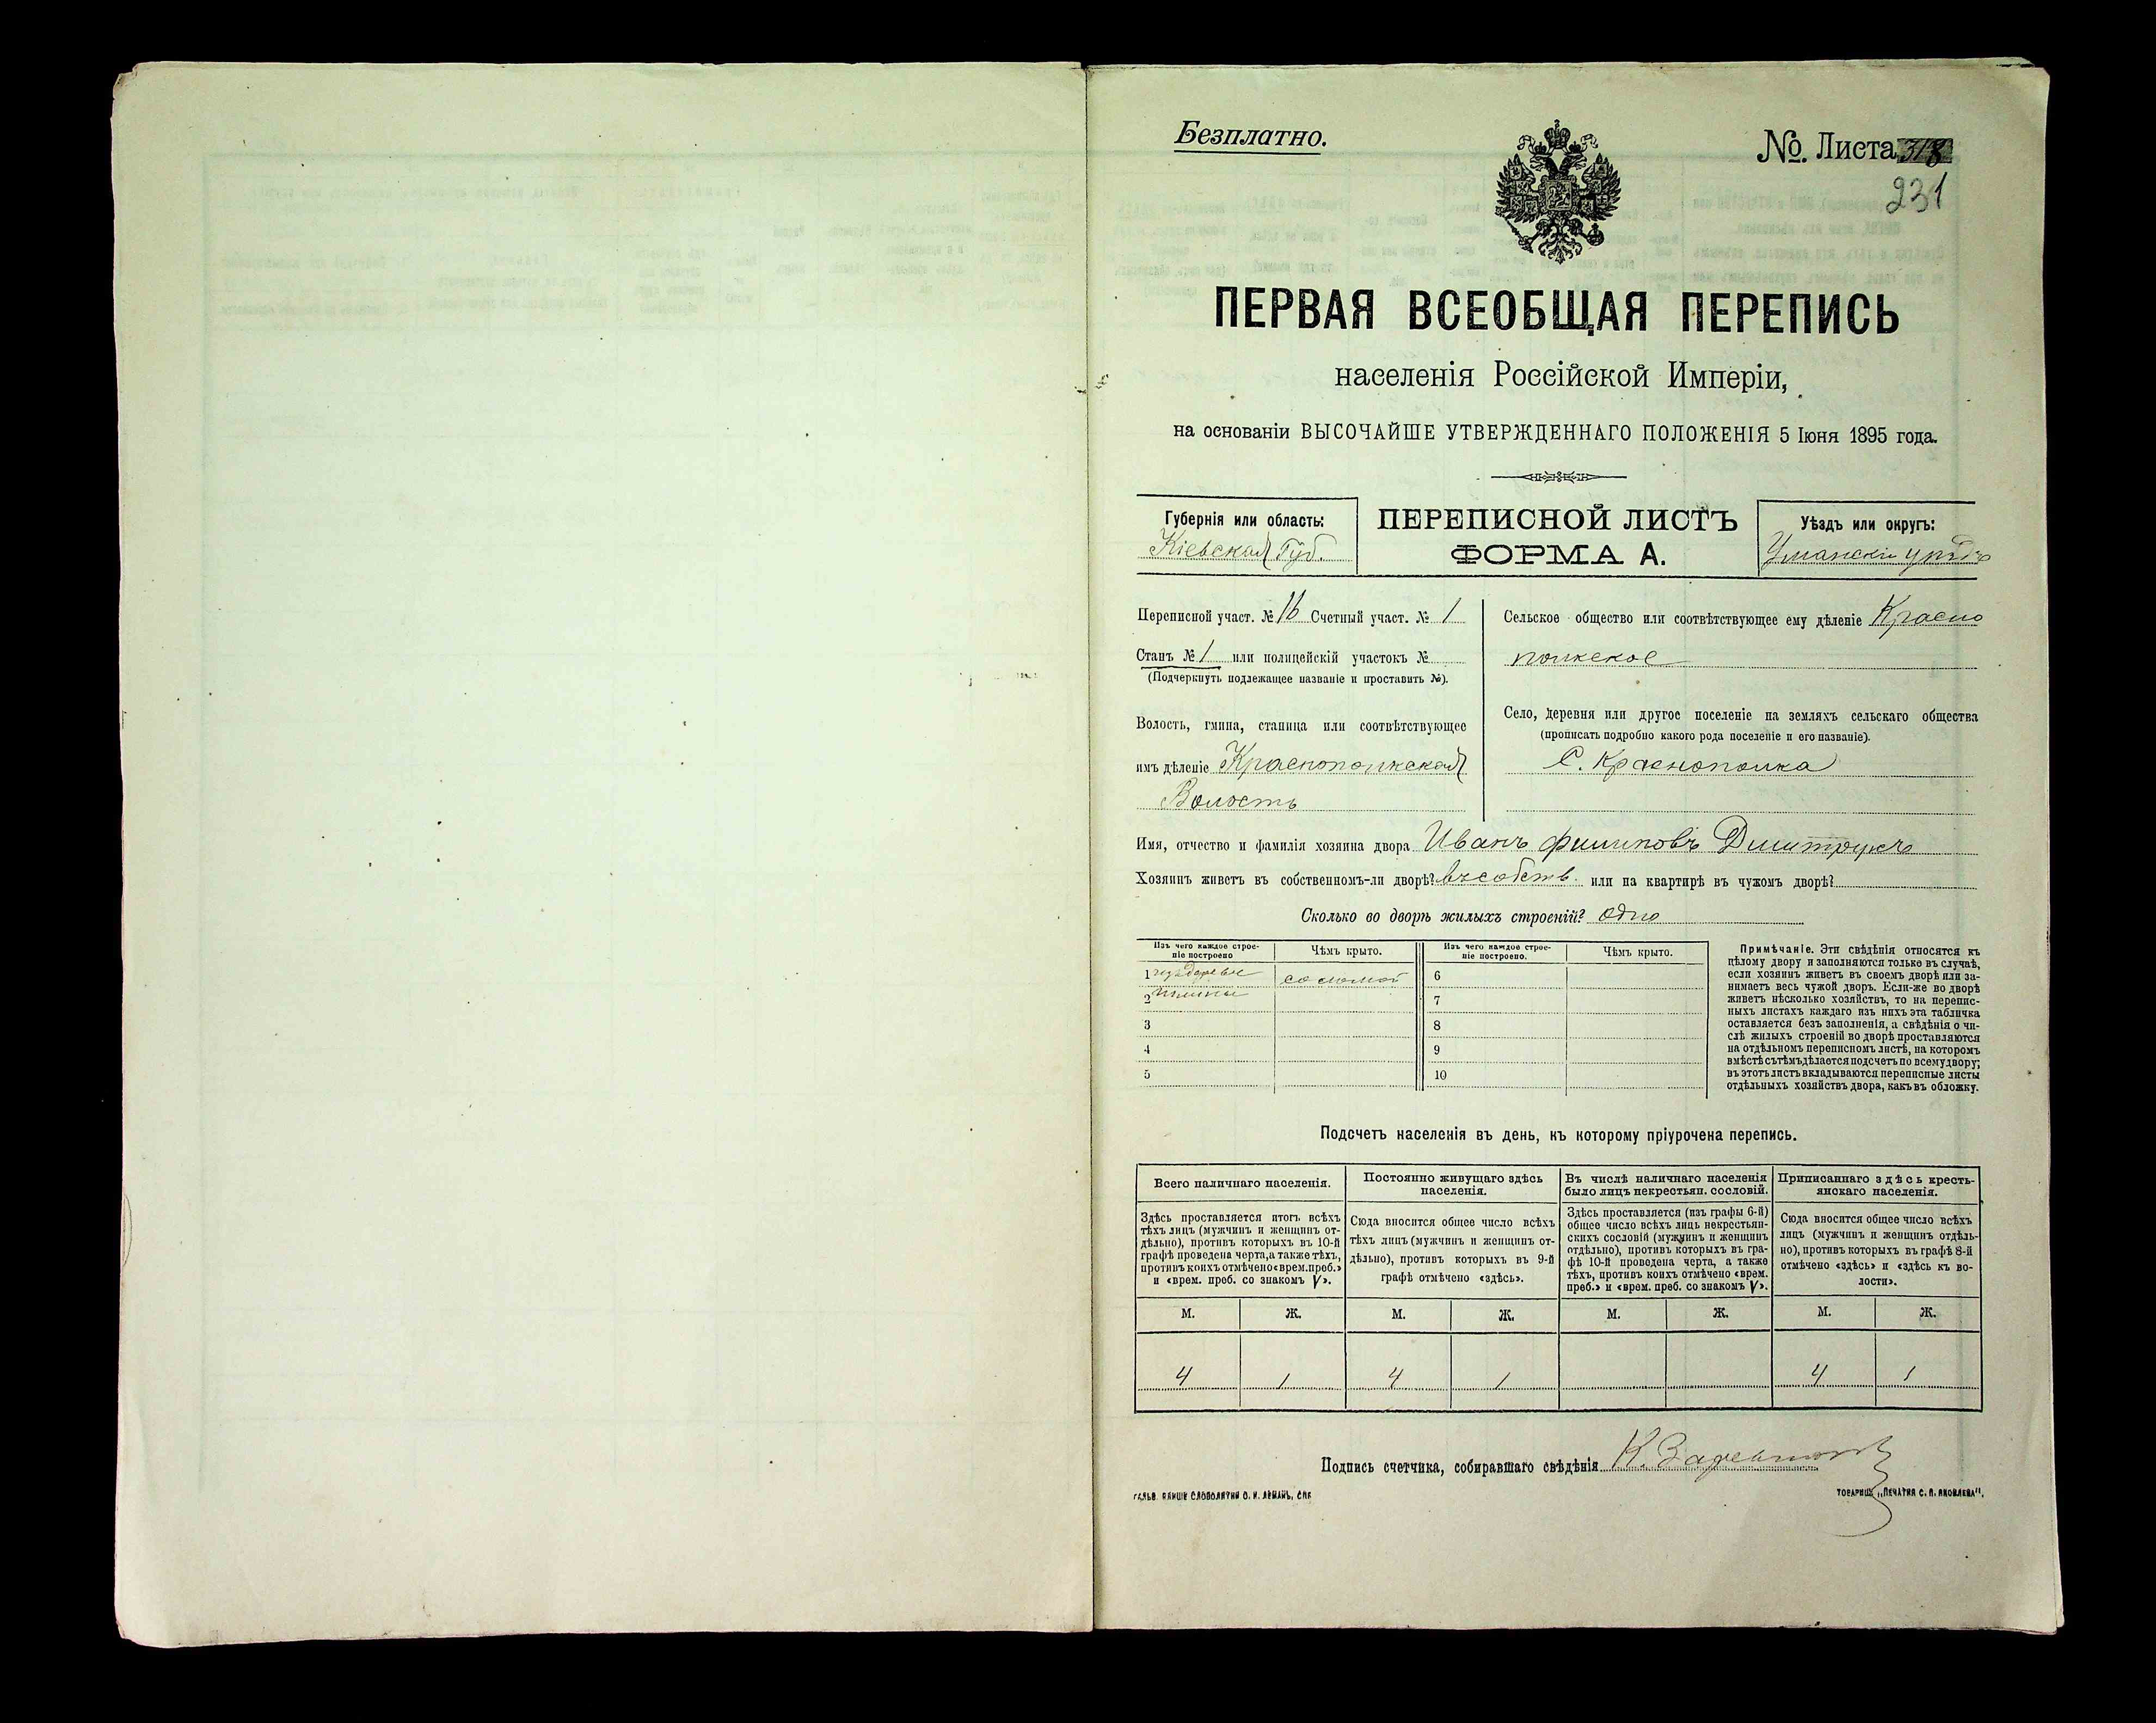 Безплатно.
№ Листа 318
231
ПЕРВАЯ ВСЕОБЩАЯ ПЕРЕПИСЬ
населенія Россійской Имперіи,
на основаніи ВЫСОЧАЙШЕ УТВЕРЖДЕННАГО ПОЛОЖЕНІЯ 5 Іюня 1895 года.
Губернія или область:
Кіевская Губ.
ПЕРЕПИСНОЙ ЛИСТЪ
ФОРМА А.
Уѣздъ или округъ:
Уманскій уѣздъ
Переписной участ. № 16 Счетный участ. № 1
Станъ № 1 или полицейскій участокъ №
(Подчеркнуть подлежащее названіе и проставить №).
Волость, гмина, станица или соотвѣтствующее
имъ дѣленіе Краснополкская
Волость
Сельское общество или соотвѣтствующее ему дѣленіе Красно
полкское
Село, деревня или другое поселеніе на земляхъ сельскаго общества
(прописать подробно какого рода поселеніе и его названіе).
С. Краснополка
Имя, отчество и фамилія хозяина двора Иванъ Филиповъ Дмитрукъ
Хозяинъ живетъ въ собственномъ-ли дворѣ? въ собств. или на квартирѣ въ чужомъ дворѣ?
Сколько во дворѣ жилыхъ строеній? одно
Изъ чего каждое строе-
ніе построено
Чѣмъ крыто.
Изъ чего каждое строе-
ніе построено.
Чѣмъ крыто.
1 соломой 6
2 глины 7
3 8
4 9
5 10
Примѣчаніе. Эти свѣдѣнія относятся къ
цѣлому двору и заполняются только въ случаѣ,
если хозяинъ живетъ въ своемъ дворѣ или за-
нимаетъ весь чужой дворъ. Если-же во дворѣ
живетъ нѣсколько хозяйствъ, то на перепис-
ныхъ листахъ каждаго изъ нихъ эта табличка
оставляется безъ заполненія, а свѣдѣнія о чи-
слѣ жилыхъ строеній во дворѣ проставляются
на отдѣльномъ переписномъ листѣ, на которомъ
вмѣстѣ съ тѣмъ дѣлается подсчетъ по всему двору;
въ этотъ листъ вкладываются переписные листы
отдѣльныхъ хозяйствъ двора, какъ въ обложку.
Подсчетъ населенія въ день, къ которому пріурочена перепись.
Всего наличнаго населенія.
Здѣсь проставляется итогъ всѣхъ
тѣхъ лицъ (мужчинъ и женщинъ от-
дѣльно), противъ которыхъ въ 10-й
графѣ проведена черта, а также тѣхъ,
противъ коихъ отмѣчено «врем. преб.»
и «врем. преб. со знакомъ V».
Постоянно живущаго здѣсь
населенія.
Сюда вносится общее число всѣхъ
тѣхъ лицъ (мужчинъ и женщинъ от-
дѣльно), противъ которыхъ въ 9-й
графѣ отмѣчено «здѣсь».
Въ числѣ наличнаго населенія
было лицъ некрестьян. сословій.
Здѣсь проставляется (изъ графы 6-й)
общее число всѣхъ лицъ некрестьян-
скихъ сословій (мужчинъ и женщинъ
отдѣльно), противъ которыхъ въ гра-
фѣ 10-й проведена черта, а также
тѣхъ, противъ коихъ отмѣчено «врем.
преб.» и «врем. преб. со знакомъ V».
Приписаннаго здѣсь кресть-
янскаго населенія.
Сюда вносится общее число всѣхъ
лицъ (мужчинъ и женщинъ отдѣль-
но), противъ которыхъ въ графѣ 8-й
отмѣчено «здѣсь» и «здѣсь къ во-
лости».
М. Ж. М. Ж. М. Ж. М. Ж.
4 1 4 1 4 1
Подпись счетчика, собиравшаго свѣдѣнія К.
ТОВАРИЩ. „ПЕЧАТНЯ С. П. ЯКОВЛЕВА".